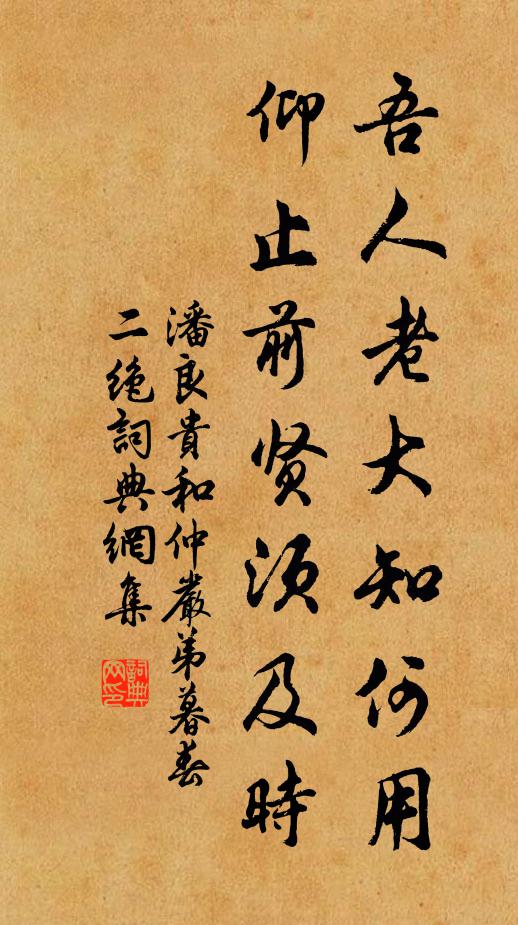 吾人老大知何用
仰止前贤须及時
潘良貴和仲嚴弟暮春
二絶詞典網集
詞典网印